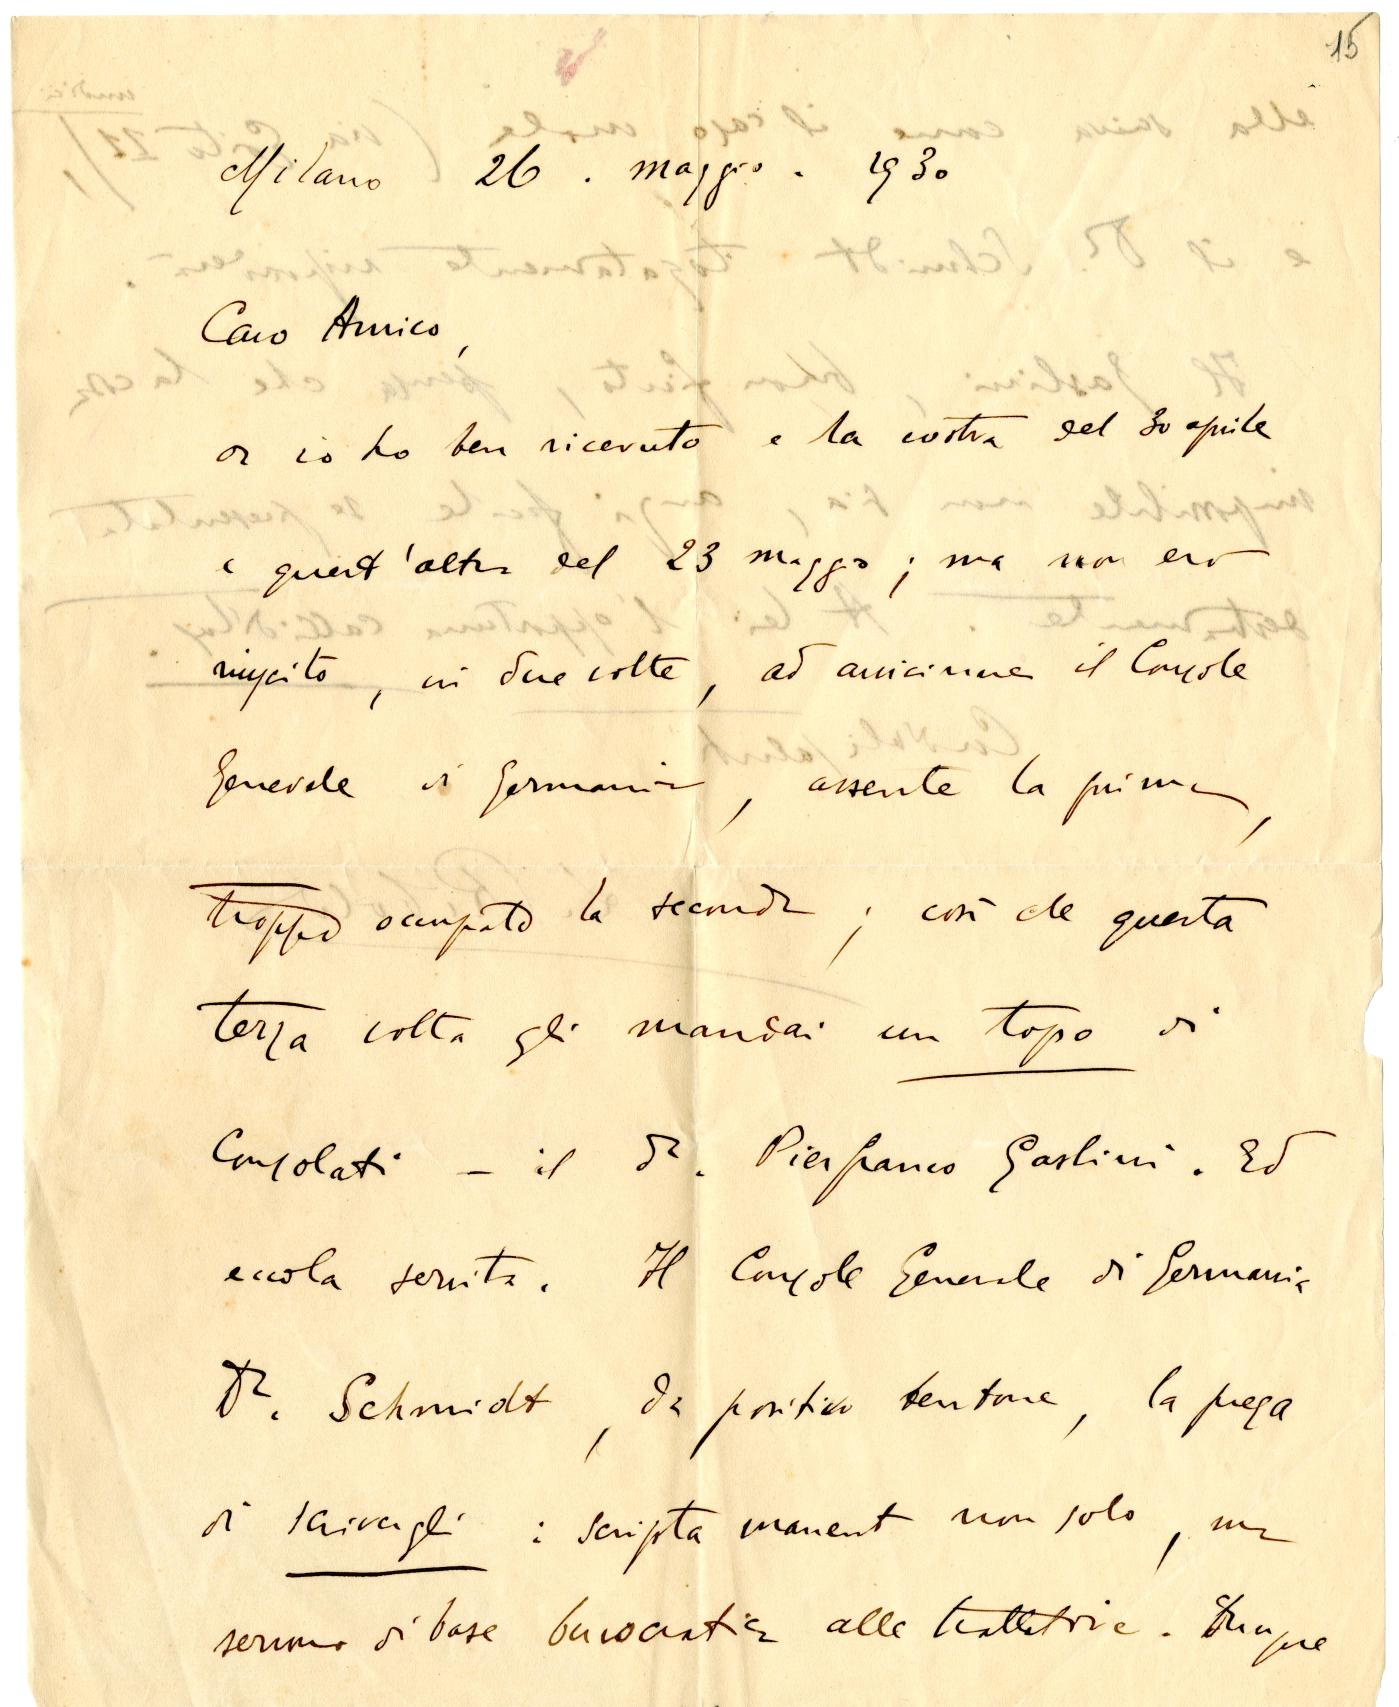 15
Milano 26 . maggio . 1930
Caro Amico,
or io ho ben ricevuto e la vostra del 30 aprile
e quest'altra del 23 maggio ; ma non ero
riuscito, in due volte, ad avvicinare il Console
Generale di Germania, assente la prima,
troppo occupato la seconda ; così che questa
terza volta gli mandai un topo di
Consolati – il dr. Pierfranco Gaslini. Ed
eccola servita. Il Console Generale di Germania
Dr. Schmidt, da positivo teutone, la prega
di scrivergli : scripta manent non solo, ma
servono di base burocratica alle trattative. Dunque